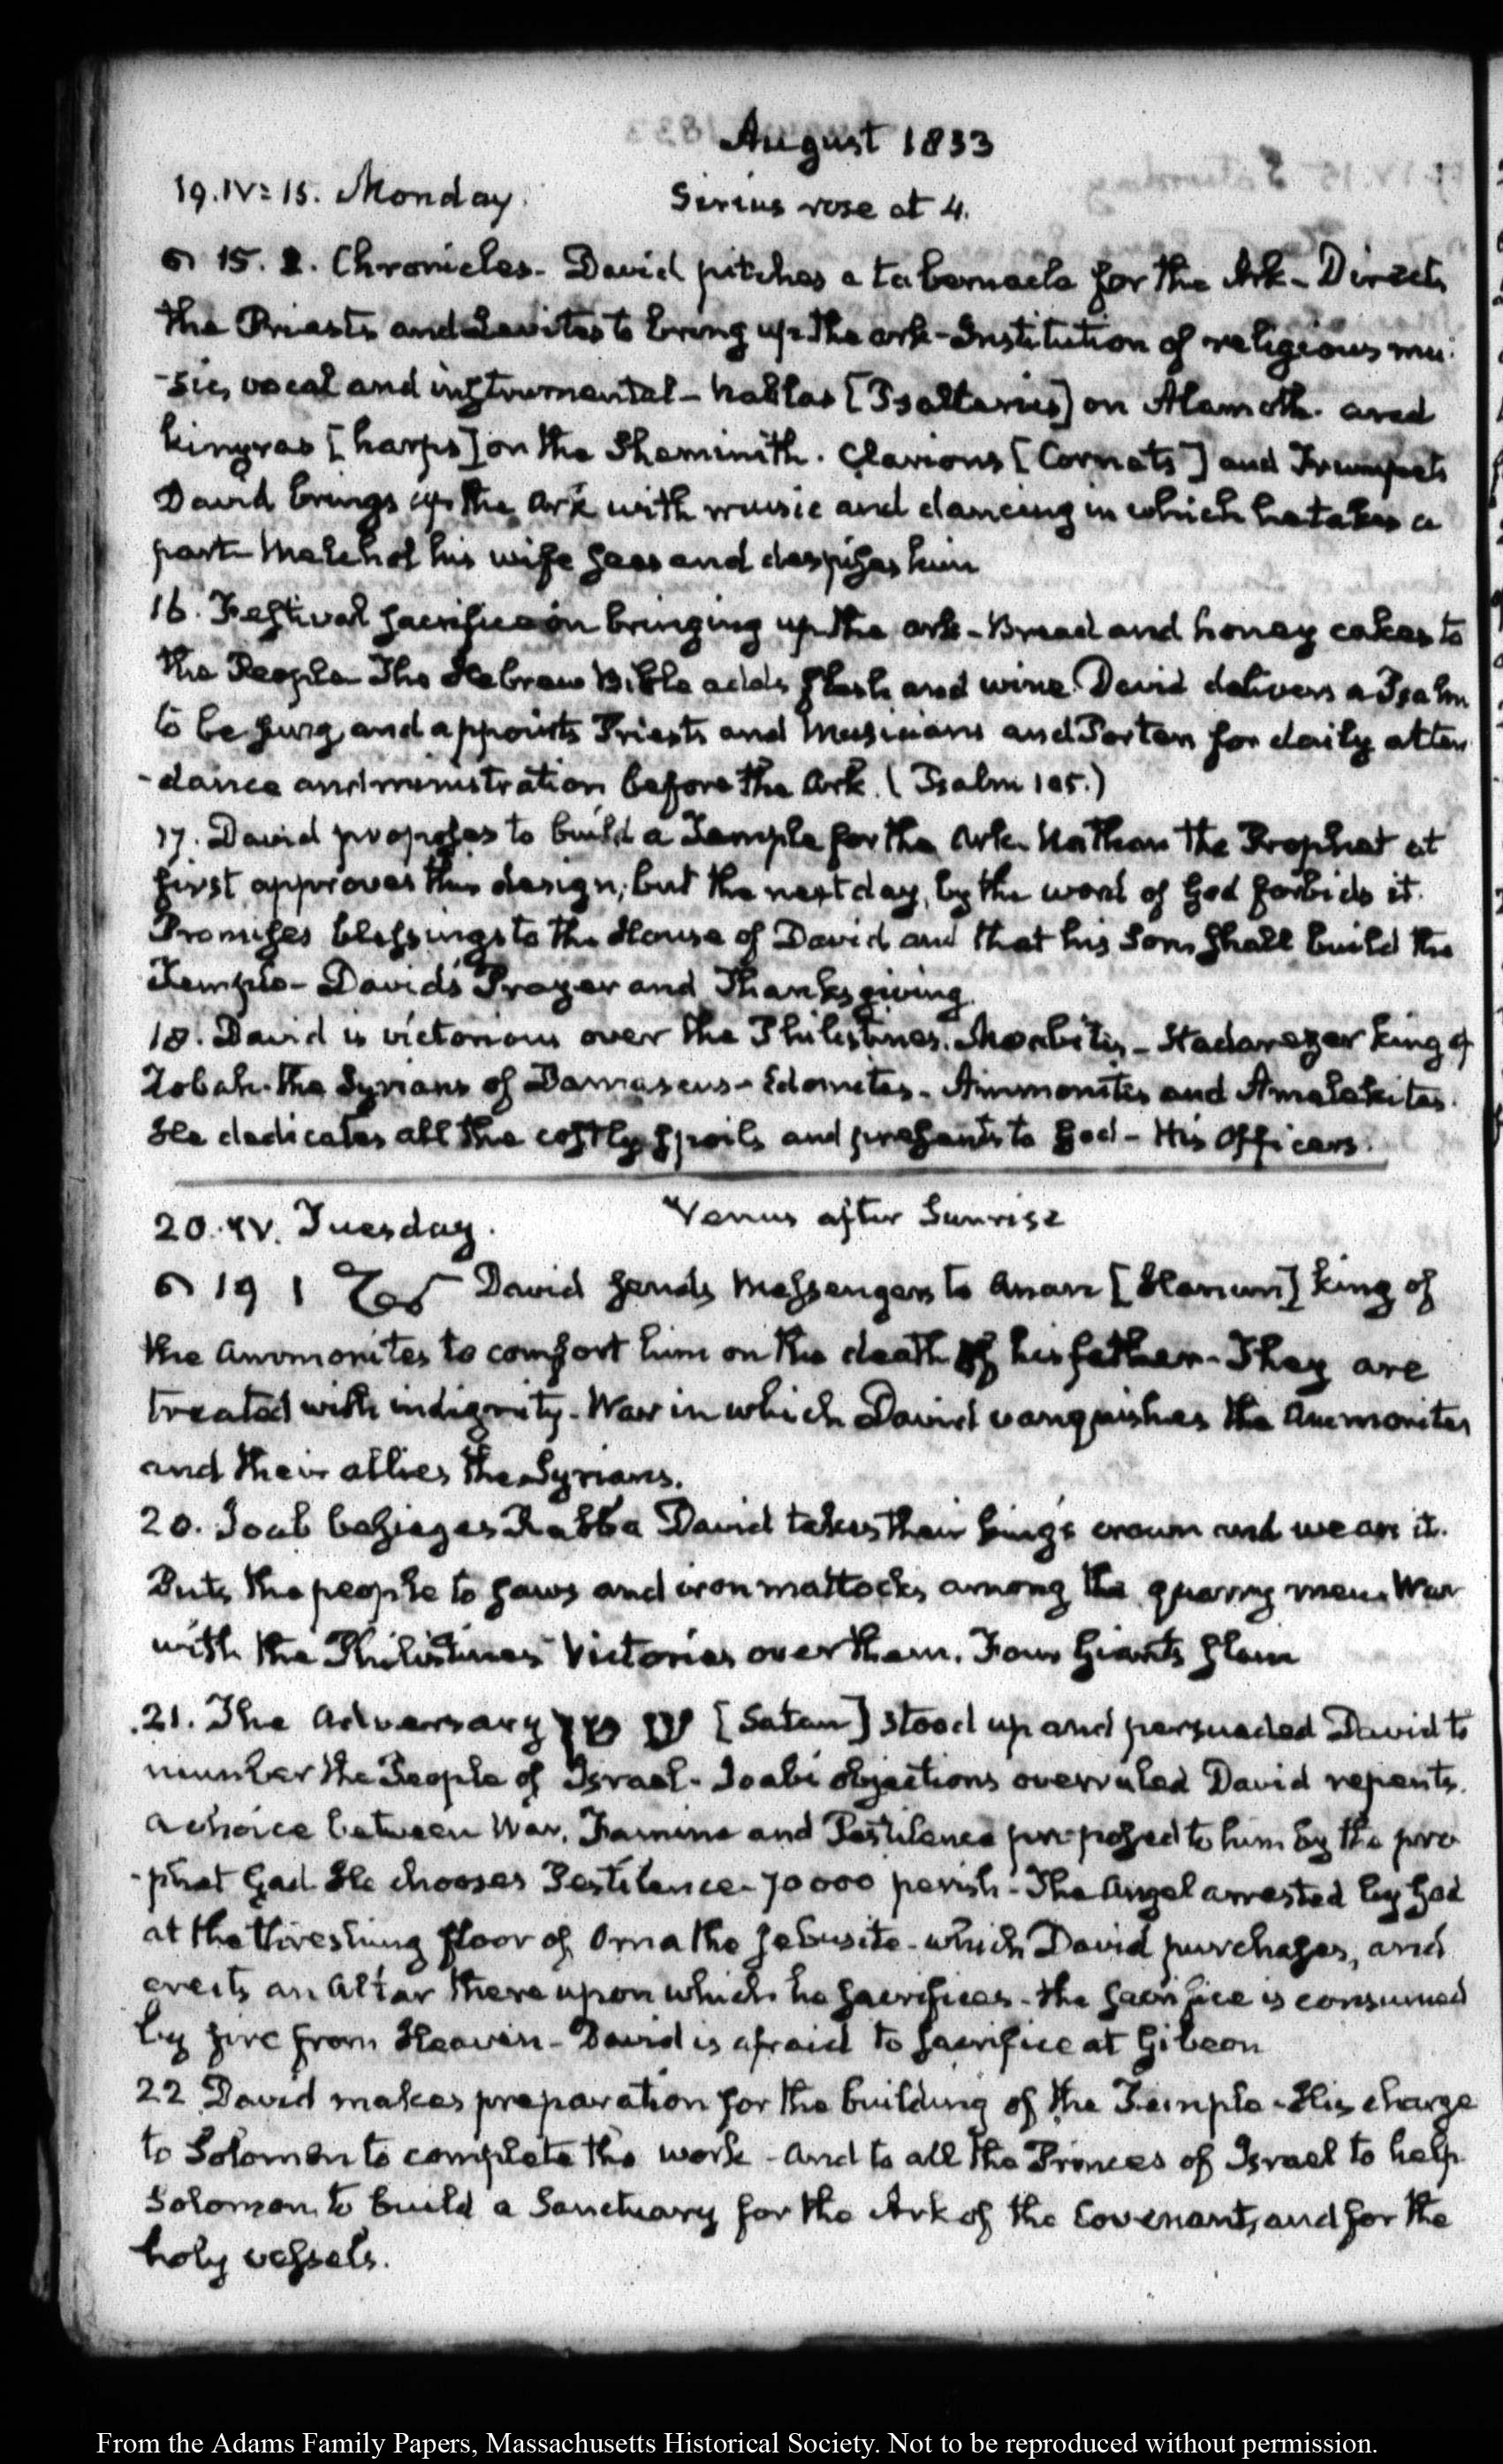 August 1833
19. IV:15. Monday. Sirius rose at 4.
15. 1. Chronicles. David pitches a tabernacle for the Ark - Directs
the Priests and Levites to bring up the ark - Institution of religious mu-
-sic, vocal and instrumental - Nablas [Psalteries] on Alamoth. and
kinyras [harps] on the Sheminith. Clarions [Cornets] and Trumpets
David brings up the Ark with music and dancing in which he takes a
part Melchol his wife sees and despises him
16. Festival sacrifice on bringing up the ark - Bread and honey cakes to
the People The Hebrew Bible adds flesh and wine. David delivers a Psalm
to be sung, and appoints Priests and Musicians and Porters for daily atten
-dance and ministration before the Ark. (Psalm 105.)
17. David proposes to build a Temple for the Ark. Nathan the Prophet at
first approves this design; but the next day, by the word of God forbids it.
Promises blessings to the House of David and that his Son shall build the
Temple - David's Prayer and Thanksgiving.
18. David is victorious over the Philistines. Moabites - Hadarezer king of
Zobah. the Syrians of Damascus - Edomites - Ammonites and Amalekites.
He dedicates all the costly spoils and presents to God - His Officers.
20. IV. Tuesday. Venus after Sunrise
19 1 David sends Messengers to Anan [Hanun] king of
the Ammonites to comfort him on the death of his father - They are
treated with indignity - War in which David vanquishes the Ammonites
and their allies the Syrians.
20. Joab besieges Rabba David takes their king's crown and wears it.
Puts the people to saws and iron mattocks, among the quarry men. War
with the Philistines Victories over them. Four Giants slain
21. The Adversary [Satan] stood up and persuaded David to
number the People of Israel - Joab's objections overruled David repents.
a choice between War, Famine and Pestilence proposed to him by the pro
-phet Gad. He chooses Pestilence - 70000 perish - The Angel arrested by God
at the threshing floor of Orna the Jebusite - which David purchases, and
erects an Altar there upon which he sacrifices - the sacrifice is consumed
by fire from Heaven - David is afraid to sacrifice at Gibeon
22 David makes preparation for the building of the Temple - His charge
to Solomon to complete the work - and to all the Princes of Israel to help
Solomon to build a Sanctuary for the Ark of the Covenant, and for the
holy vessels.
From the Adams Family Papers, Massachusetts Historical Society. Not to be reproduced without permission.